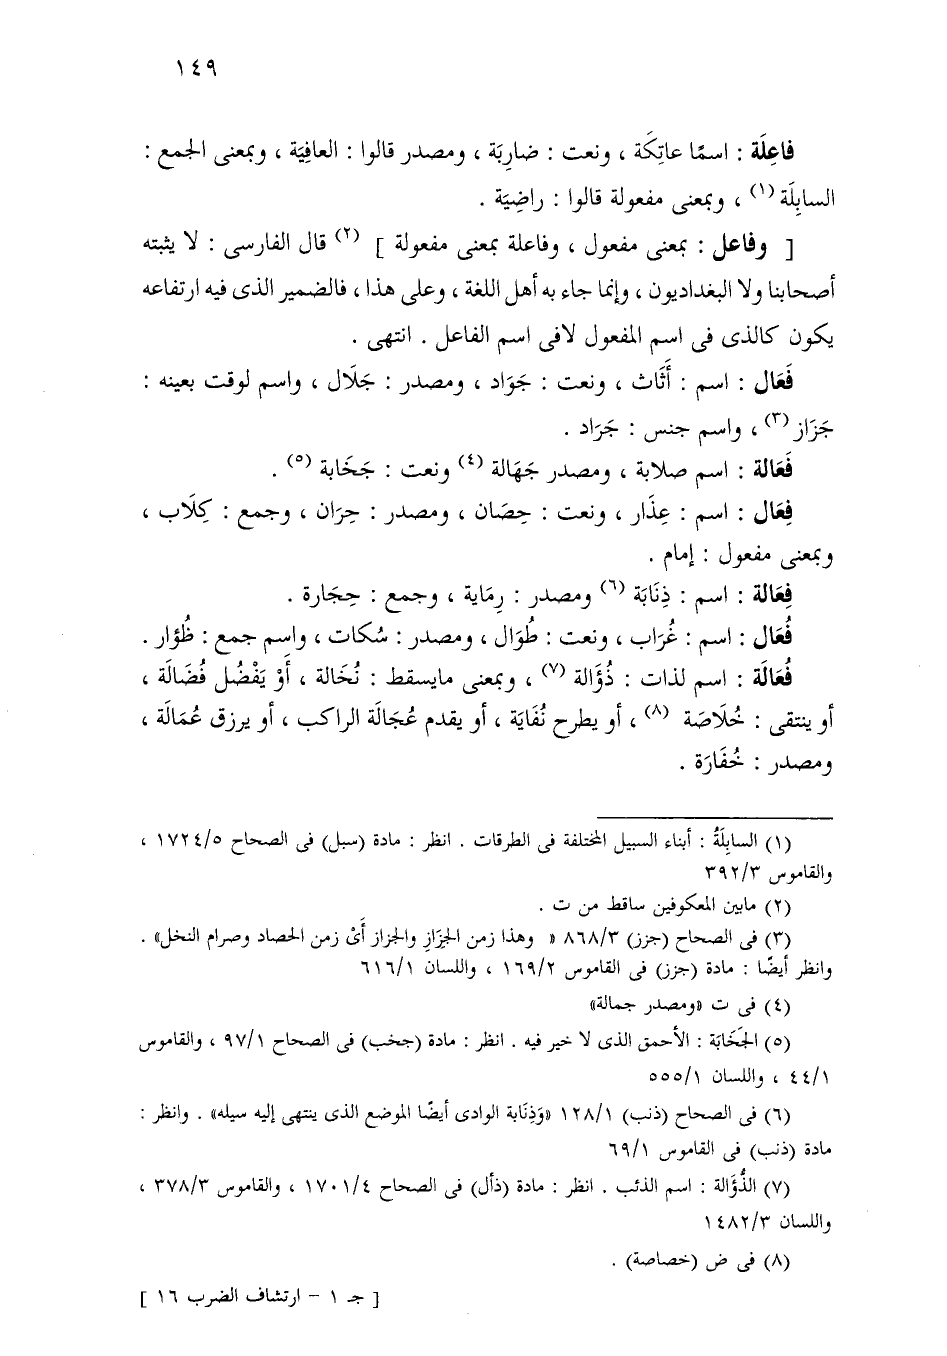 ١٤٩
فاعِلَة : اسمًا عاتِكَة ، ونعت : ضارِبَة ، ومصدر قالوا : العافِيَة ، وبمعنى الجمع :
السابِلَة (١) ، وبمعنى مفعولة قالوا : راضِيَة .
[ وفاعل : بمعنى مفعول ، وفاعلة بمعنى مفعولة ] (٢) قال الفارسى : لا يثبته
أصحابنا ولا البغداديون ، وإنما جاء به أهل اللغة ، وعلى هذا ، فالضمير الذى فيه ارتفاعه
يكون كالذى فى اسم المفعول لافى اسم الفاعل . انتهى .
فَعَال : اسم : أَثَاث ، ونعت : جَوَاد ، ومصدر : جَلَال ، واسم لوقت بعينه :
جَزَاز (٣) ، واسم جنس : جَرَاد .
فَعَالة : اسم صلابة ، ومصدر جَهَالة (٤) ونعت : جَخَابة (٥) .
فِعَال : اسم : عِذَار ، ونعت : حِصَان ، ومصدر : حِرَان ، وجمع : كِلَاب ،
وبمعنى مفعول : إمام .
فِعَالة : اسم : ذِنَابَة (٦) ومصدر : رِمَاية ، وجمع : حِجَارة .
فُعَال : اسم : غُرَاب ، ونعت : طُوَال ، ومصدر : سُكات ، واسم جمع : ظُؤار .
فُعَالَة : اسم لذات : ذُؤَالة (٧) ، وبمعنى مايسقط : نُخَالة ، أَوْ يَفْضُل فُضَالَة ،
أو ينتقى : خُلَاصَة (٨) ، أو يطرح نُفَايَة ، أو يقدم عُجَالَة الراكب ، أو يرزق عُمَالَة ،
ومصدر : خُفَارَة .
(١) السابِلَةُ : أبناء السبيل المختلفة فى الطرقات . انظر : مادة (سبل) فى الصحاح ١٧٢٤/٥ ،
والقاموس ٣٩٢/٣
(٢) مابين المعكوفين ساقط من ت .
(٣) فى الصحاح (جزز) ٨٦٨/٣ « وهذا زمن الجَزَازِ والجِزاز أَىْ زمن الحصاد وصرام النخل» .
وانظر أيضًا : مادة (جزز) فى القاموس ١٦٩/٢ ، واللسان ٦١٦/١
(٤) فى ت «ومصدر جمالة»
(٥) الجَخَابَة : الأحمق الذى لا خير فيه . انظر : مادة (جخب) فى الصحاح ٩٧/١ ، والقاموس
٤٤/١ ، واللسان ٥٥٥/١
(٦) فى الصحاح (ذنب) ١٢٨/١ «وَذِنَابة الوادى أيضًا الموضع الذى ينتهى إليه سيله» . وانظر :
مادة (ذنب) فى القاموس ٦٩/١
(٧) الذُّؤَالة : اسم الذئب . انظر : مادة (ذأل) فى الصحاح ١٧٠١/٤ ، والقاموس ٣٧٨/٣ ،
واللسان ١٤٨٢/٣
(٨) فى ض (خصاصة) .
[ جـ ١ – ارتشاف الضرب ١٦ ]